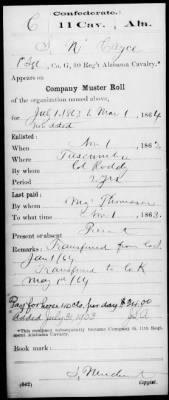 Confederate.
C 11 Cav. Ala.
S. N. Cayce
P Sgt, Co. G, 10 Reg't Alabama Cavalry.*
Appears on
Company Muster Roll
of the organization named above,
for July 1, 1863 to Mar 1, 1864
not dated
Enlisted:
When Nov 1, 186
Where Tuscumbia
By whom Col Roddy
Period 2 yrs
Last paid:
By whom Maj Thomason
To what time Nov 1, 1863.
Present or absent Present
Remarks: Transferred from Co
Jan 1/64
Transferred to Co K
May 1st 64
Pay for horse 40 cts. per day $24.00
added July 31,
*This company subsequently became Company G, 11th Regiment Alabama Cavalry.
Book mark:
(642) Copyist.